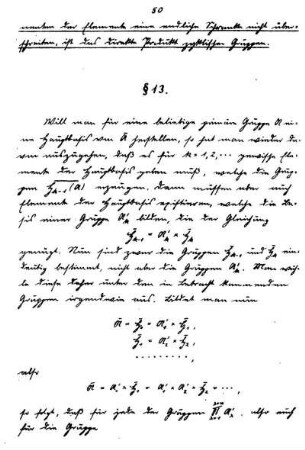 50
menten der Elemente eine endliche Schranke nicht über-
schreiten, ist das direkte Produkt zyklischer Gruppen.
§ 13.
Will man für eine beliebige primäre Gruppe A ei-
ne Hauptbasis von Ā herstellen, so hat man wieder da-
von auszugehen, daß es für k = 1, 2, ... gewisse Ele-
mente der Hauptbasis geben muß, welche die Grup-
pen erzeugen. Dann müssen aber auch
Elemente der Hauptbasis existieren, welche die Ba-
sis einer Gruppe bilden, die der Gleichung
genügt. Nun sind zwar die Gruppen und ein-
deutig bestimmt, nicht aber die Gruppen Man wäh-
le diese daher unter den in Betracht kommenden
Gruppen irgendwie aus. Bildet man nun
. . . . . . . . . ,
also
so folgt, daß für jede der Gruppen also auch
für die Gruppe